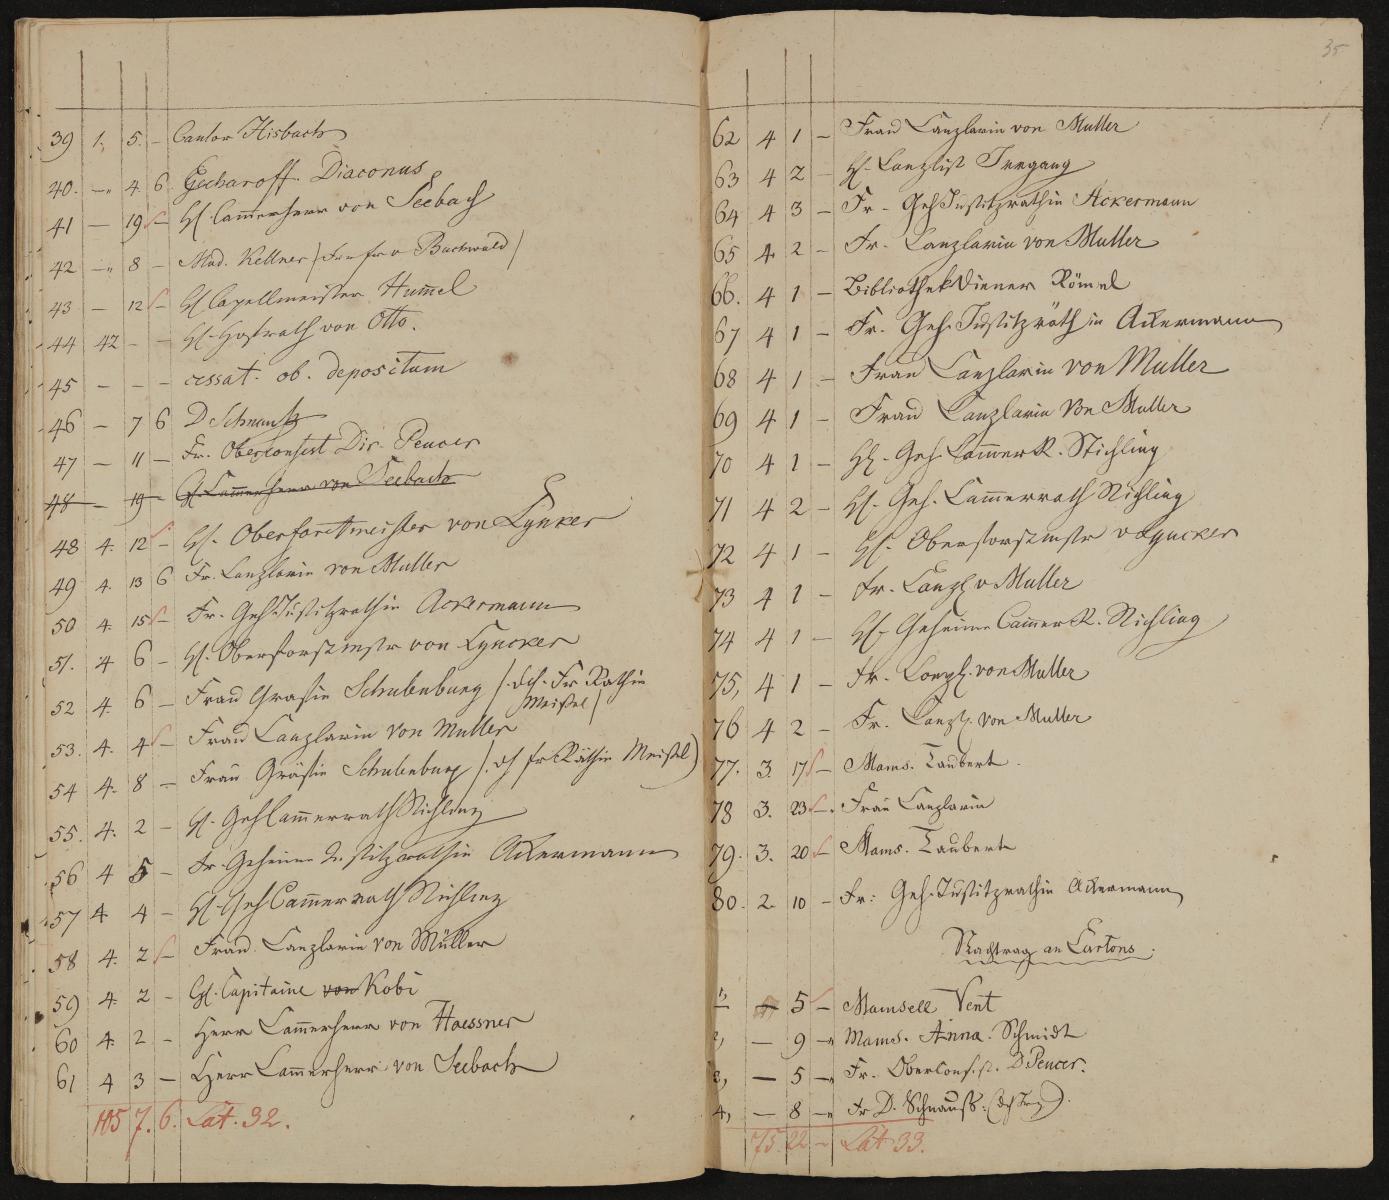 39 1. 5. – Cantor Hisbach
40. –" 4. 6. Gecharoff. Diaconus
41 – 19 – H. Cammerherr von Seebach
42 –" 8 – Mad. Kellner / Buchwald /
43 – 12 – H Capellmeister Hummel
44 42 – – H. Hofrath von Otto.
45 – – – cessat. ob. depositum
46 – 7 6 D Schnauß
47 – 11 – Fr. Oberconsist Dir. Peucer
48 – 19 – H. Cammerherr von Seebach
48 4. 12 – H. Oberforstmeister von Lynker
49 4. 13 6 Fr. Canzlarin von Muller
50 4. 15 – Fr. Geh Justitzrathin Ackermann
51. 4 6 – H. Oberforstmstr von Lyncker
52 4. 6 – Frau Grafin Schulenburg /. dch. Fr Rathin
Meißel /
53. 4. 4 – Frau Canzlarin von Muller
54 4. 8 – Frau Gräfin Schulenburg /. dch fr Räthin Meißel)
55. 4. 2 – H. Geh Cammerrath Stichling
56 4 5 – Fr. Geheime Justitzrathin Ackermann
57 4. 4 – H. Geh Cammerrath Stichling
58 4. 2 – Frau Canzlarin von Müller
59 4. 2 – H. Capitaine von Kobi
60 4. 2 – Herr Cammerherr von Haessner
61 4 3 – Herr Cammerherr von Seebach
105 7. 6. Lat. 32.
35
62 4 1 – Frau Canzlarin von Muller
63 4 2 – H. Canzlist Irrgang
64 4 3 – Fr. Geh Justitzrathin Ackermann
65 4 2 – Fr. Canzlarin von Muller
66. 4 1 – Bibliothekdiener Römel
67 4 1 – Fr. Geh. Justitzräthin Ackermann
68 4 1 – Frau Canzlarin von Muller
69 4 1 – Frau Canzlarin von Muller
70 4 1 – H. Geh. Cammer R. Stichling
71 4 2 – H. Geh. Cammerrath Stichling
72 4 1 – H. Oberforstmstr v Lyncker
73 4 1 – Fr. Canzl v Muller
74 4 1 – H. Geheime Cammer R. Stichling
75, 4 1 – Fr. Canzl. von Muller
76 4 2 – Fr. Canzl. von Muller
77. 3. 17 – Mams. Taubert.
78 3. 23 – Frau Canzlarin
79. 3. 20 – Mams. Taubert
80. 2. 10 – Fr: Geh. Justitzrathin Ackermann
Nachtrag an Cartons.
– 5 – Mamsell Vent
2, – 9 –" Mams. Anna. Schmidt
3, – 5 –" Fr. Oberconsist. D Peucer.
4, – 8 –" Fr D. Schnauß.
75. 22 – Lat 33.